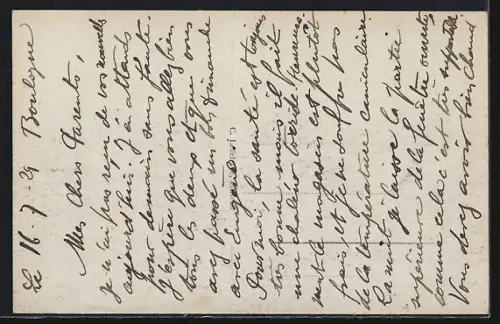 Le 16-7-29 Boulogne
Mes Chers Parents,
Je n'ai pas reçu de vos nouvelles
aujourd'hui, j'en attends
pour demain sans faute.
J'espère que vous allez bien
tous les deux et que vous
avez passé un bon dimanche
avec
Pour moi, la santé est toujours
très bonne mais il fait
une chaleur torride. Heureuse-
ment le magasin est plutôt
frais et je ne souffre pas
de la température caniculaire.
La nuit je laisse la partie
supérieure de la fenêtre ouverte
comme cela c'est très supportable
Vous devez avoir bien chaud